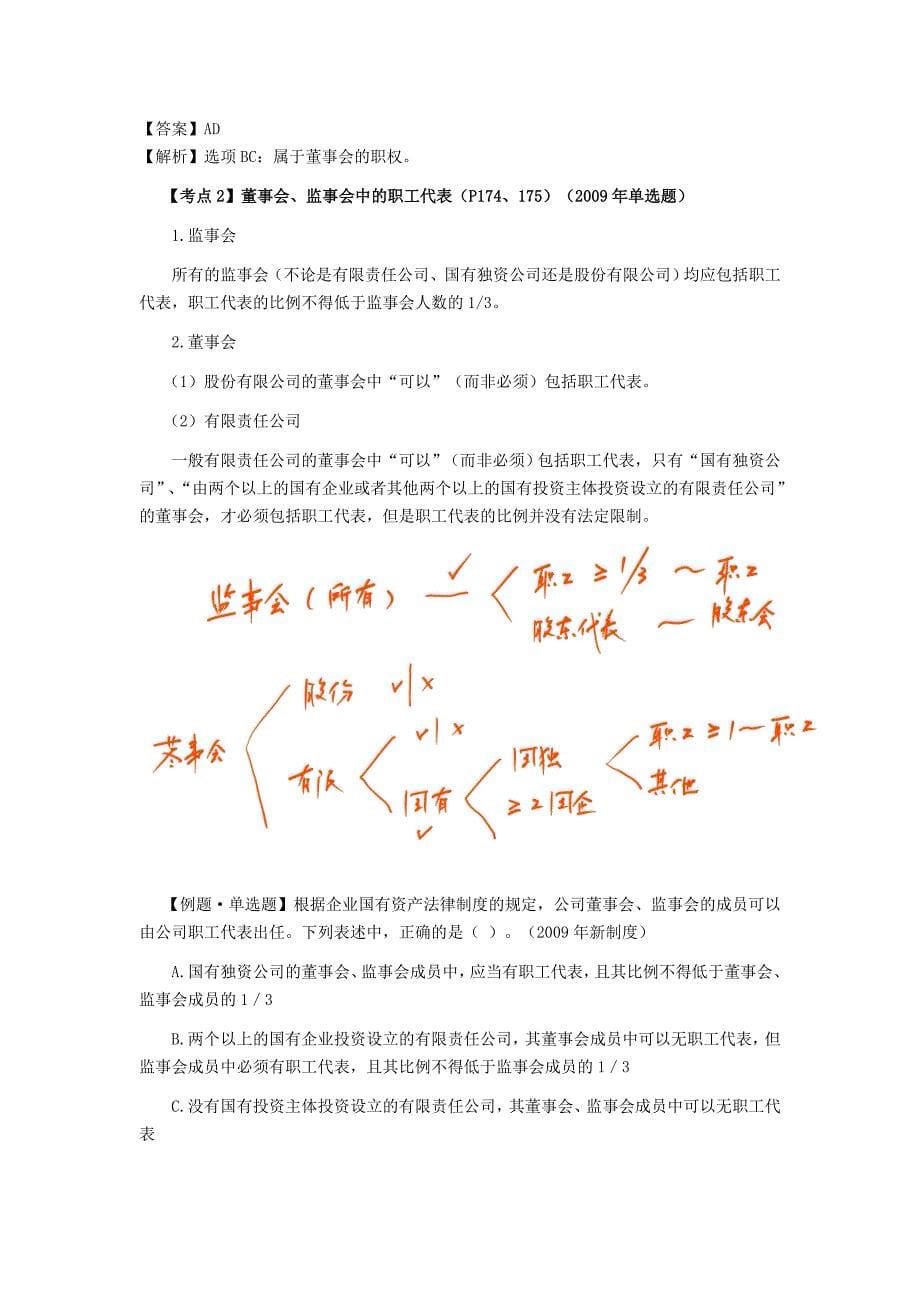 【答案】AD
【解析】选项BC：属于董事会的职权。
【考点2】董事会、监事会中的职工代表（P174、175）（2009年单选题）
1.监事会
所有的监事会（不论是有限责任公司、国有独资公司还是股份有限公司）均应包括职工
代表，职工代表的比例不得低于监事会人数的1/3。
2.董事会
（1）股份有限公司的董事会中“可以”（而非必须）包括职工代表。
（2）有限责任公司
一般有限责任公司的董事会中“可以”（而非必须）包括职工代表，只有“国有独资公
司”、“由两个以上的国有企业或者其他两个以上的国有投资主体投资设立的有限责任公司”
的董事会，才必须包括职工代表，但是职工代表的比例并没有法定限制。
监事会（所有） — ✓ 职工 ≥ 1/3 ～ 职工
股东代表 ～ 股东会
董事会
股份 ✓|×
有限 ✓|×
国有 ✓
国独
≥2国企
职工≥1～职工
其他
【例题·单选题】根据企业国有资产法律制度的规定，公司董事会、监事会的成员可以
由公司职工代表出任。下列表述中，正确的是（ ）。（2009年新制度）
A.国有独资公司的董事会、监事会成员中，应当有职工代表，且其比例不得低于董事会、
监事会成员的1／3
B.两个以上的国有企业投资设立的有限责任公司，其董事会成员中可以无职工代表，但
监事会成员中必须有职工代表，且其比例不得低于监事会成员的1／3
C.没有国有投资主体投资设立的有限责任公司，其董事会、监事会成员中可以无职工代
表